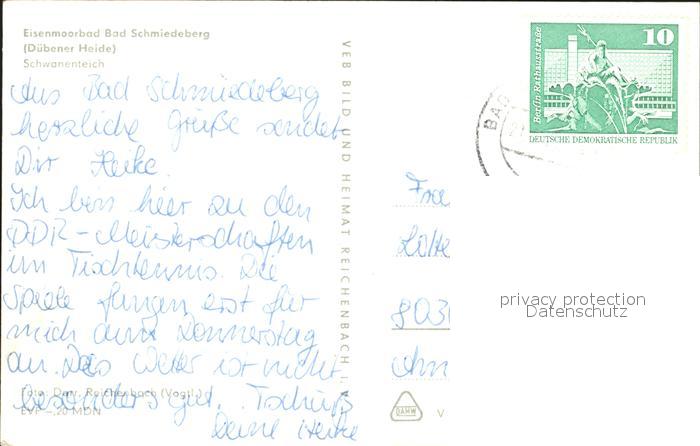 Eisenmoorbad Bad Schmiedeberg
(Dübener Heide)
Schwanenteich
Aus Bad Schmiedeberg
herzliche Grüße sendet
Dir Heike.
Ich bin hier zu den
DDR-Meisterschaften
im Tischtennis. Die
Spiele fangen erst für
mich am Donnerstag
an. Das Wetter ist nicht
besonders gut. Tschüß
Deine Heike
Foto: Darr, Reichenbach (Vogtl.)
EVP -,20 MDN
VEB BILD UND HEIMAT REICHENBACH I. V.
Berlin Rathausstraße
10
DEUTSCHE DEMOKRATISCHE REPUBLIK
BAD
Fra
8031
privacy protection
Datenschutz
DAMW
V